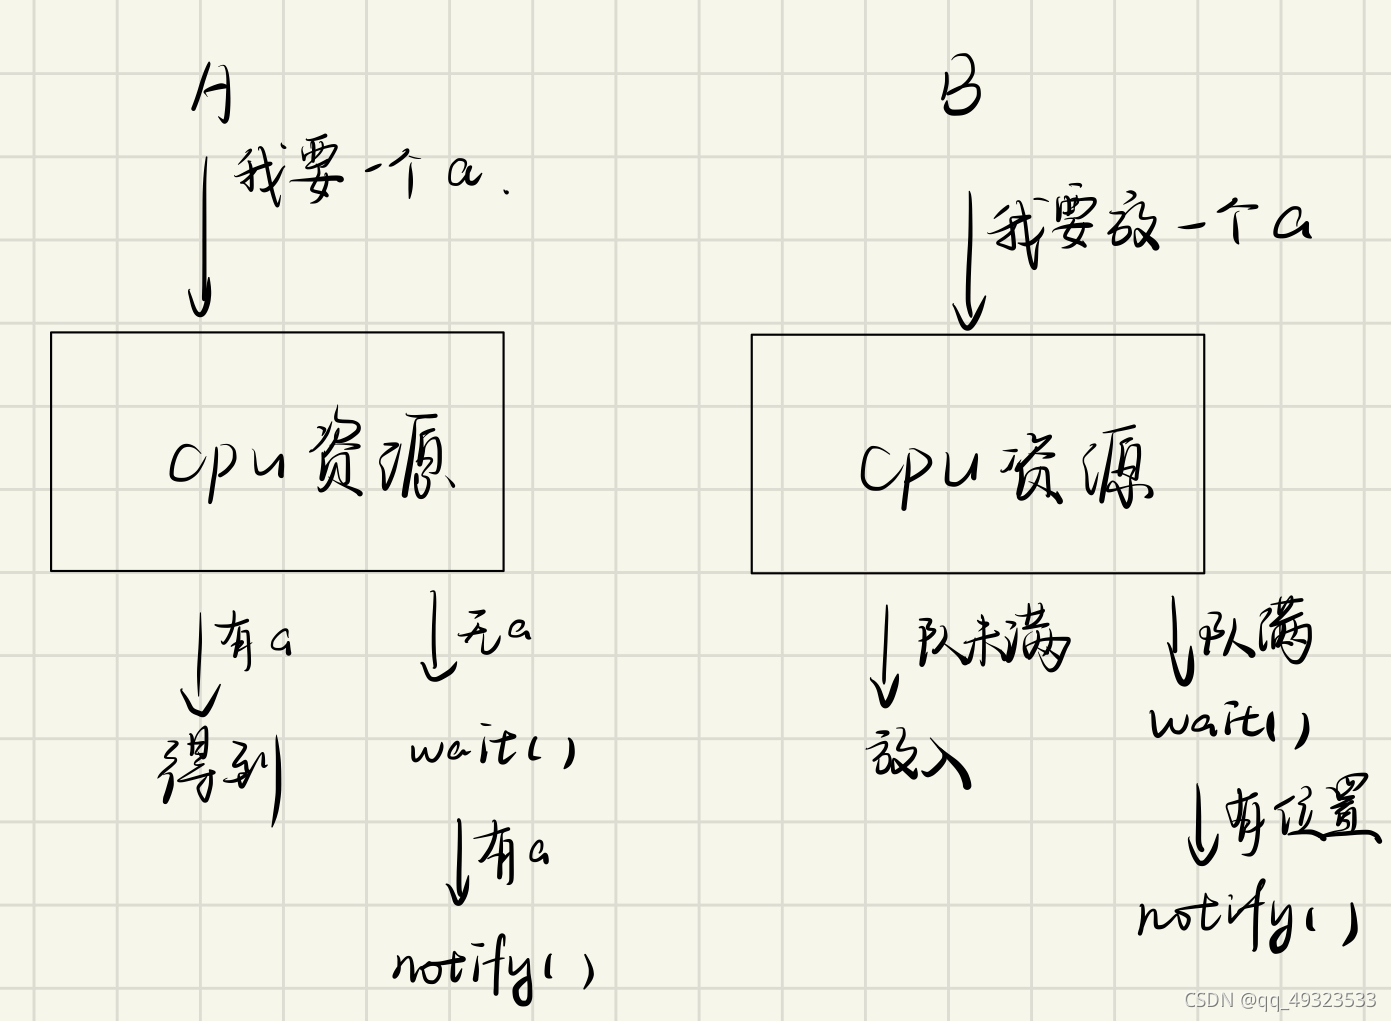 A
我要一个a.
cpu资源
有a
得到
无a
wait()
有a
notify()
B
我要放一个a
cpu资源
队未满
放入
队满
wait()
有位置
notify()
CSDN @qq_49323533